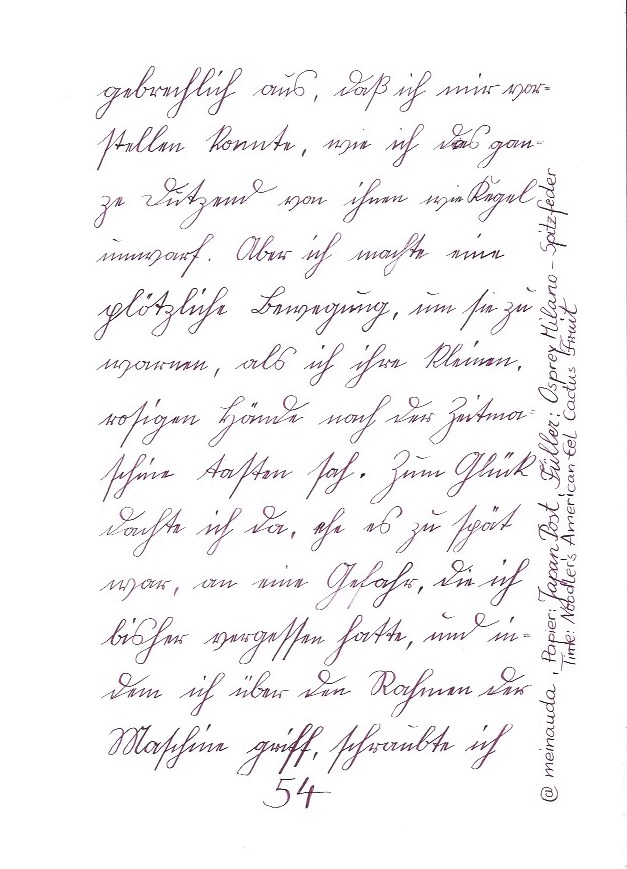 gebrechlich aus, daß ich mir vor=
stellen konnte, wie ich das gan=
ze Dutzend von ihnen wie Kegel
umwarf. Aber ich machte eine
plötzliche Bewegung, um sie zu
warnen, als ich ihre kleinen,
rosigen Hände nach der Zeitma=
schine tasten sah. Zum Glück
dachte ich da, ehe es zu spät
war, an eine Gefahr, die ich
bisher vergessen hatte, und in=
dem ich über den Rahmen der
Maschine griff, schraubte ich
54
@ meinauda, Papier: Japan Post, Füller: Osprey Milano - Spitzfeder
Tinte: Noodler's American-eel Cactus Fruit